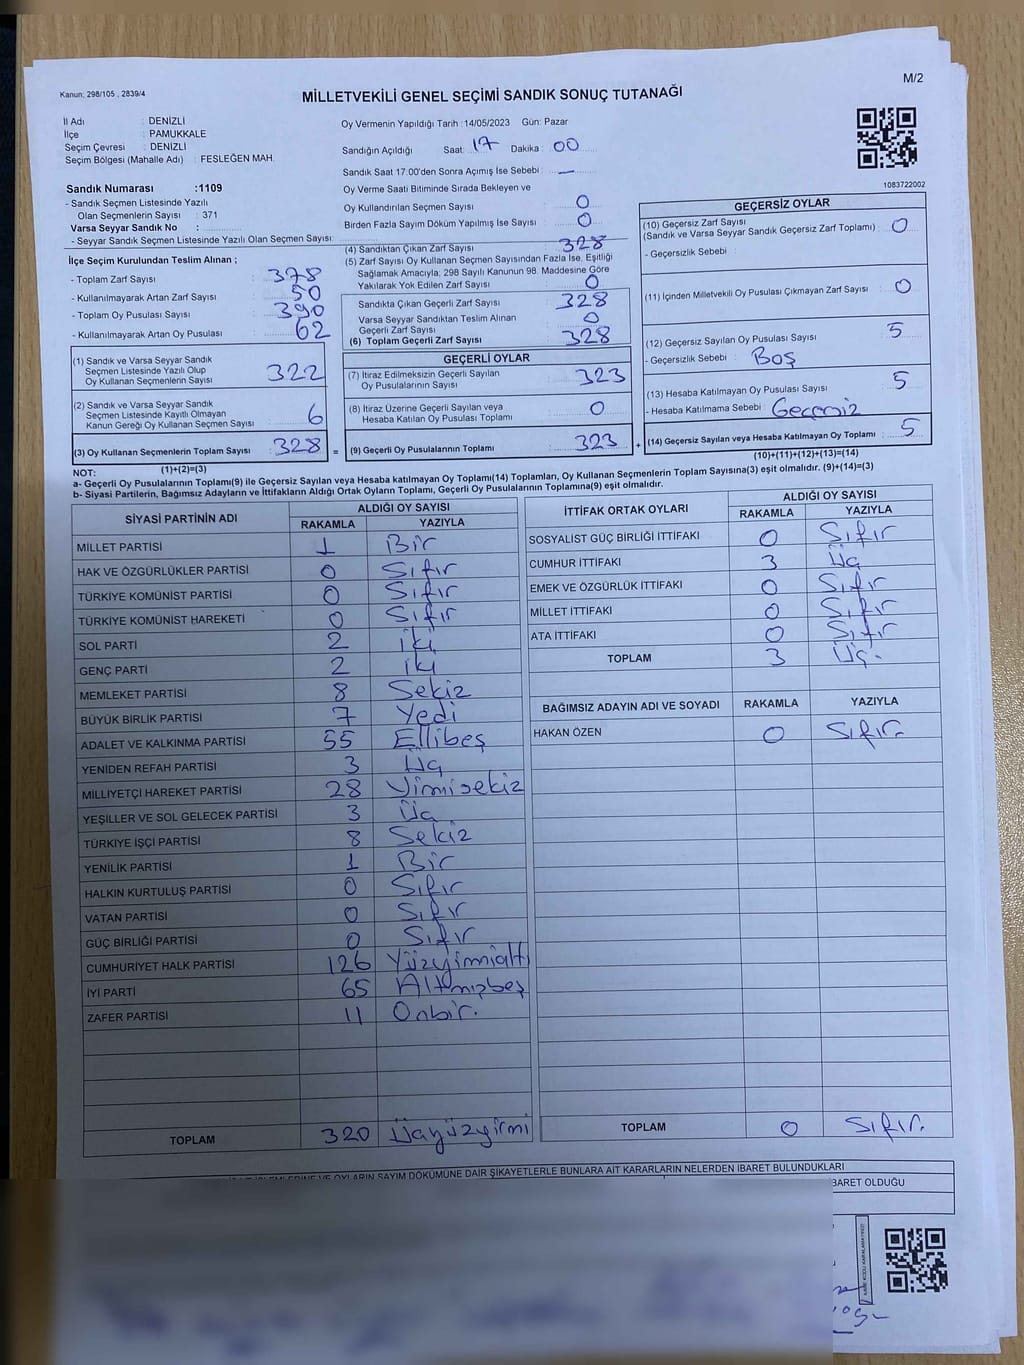 Kanun; 298/105 , 2839/4
M/2
MİLLETVEKİLİ GENEL SEÇİMİ SANDIK SONUÇ TUTANAĞI
İl Adı : DENİZLİ
İlçe : PAMUKKALE
Seçim Çevresi : DENİZLİ
Seçim Bölgesi (Mahalle Adı) : FESLEĞEN MAH.
Sandık Numarası :1109
- Sandık Seçmen Listesinde Yazılı
Olan Seçmenlerin Sayısı : 371
Varsa Seyyar Sandık No :
- Seyyar Sandık Seçmen Listesinde Yazılı Olan Seçmen Sayısı:
İlçe Seçim Kurulundan Teslim Alınan ;
- Toplam Zarf Sayısı : 378
- Kullanılmayarak Artan Zarf Sayısı : 50
- Toplam Oy Pusulası Sayısı : 390
- Kullanılmayarak Artan Oy Pusulası : 62
(1) Sandık ve Varsa Seyyar Sandık
Seçmen Listesinde Yazılı Olup
Oy Kullanan Seçmenlerin Sayısı 322
(2) Sandık ve Varsa Seyyar Sandık
Seçmen Listesinde Kayıtlı Olmayan
Kanun Gereği Oy Kullanan Seçmen Sayısı 6
(3) Oy Kullanan Seçmenlerin Toplam Sayısı 328 =
(1)+(2)=(3)
Oy Vermenin Yapıldığı Tarih :14/05/2023 Gün: Pazar
Sandığın Açıldığı Saat: 17 Dakika: 00
Sandık Saat 17:00'den Sonra Açımış İse Sebebi : —
Oy Verme Saati Bitiminde Sırada Bekleyen ve
Oy Kullandırılan Seçmen Sayısı : 0
Birden Fazla Sayım Döküm Yapılmış İse Sayısı : 0
(4) Sandıktan Çıkan Zarf Sayısı : 328
(5) Zarf Sayısı Oy Kullanan Seçmen Sayısından Fazla İse, Eşitliği
Sağlamak Amacıyla; 298 Sayılı Kanunun 98. Maddesine Göre
Yakılarak Yok Edilen Zarf Sayısı : 0
Sandıkta Çıkan Geçerli Zarf Sayısı : 328
Varsa Seyyar Sandıktan Teslim Alınan
Geçerli Zarf Sayısı : 0
(6) Toplam Geçerli Zarf Sayısı : 328
GEÇERLİ OYLAR
(7) İtiraz Edilmeksizin Geçerli Sayılan
Oy Pusulalarının Sayısı : 323
(8) İtiraz Üzerine Geçerli Sayılan veya
Hesaba Katılan Oy Pusulası Toplamı : 0
(9) Geçerli Oy Pusulalarının Toplamı : 323 +
1083722002
GEÇERSİZ OYLAR
(10) Geçersiz Zarf Sayısı
(Sandık ve Varsa Seyyar Sandık Geçersiz Zarf Toplamı) : 0
- Geçersizlik Sebebi :
(11) İçinden Milletvekili Oy Pusulası Çıkmayan Zarf Sayısı : 0
(12) Geçersiz Sayılan Oy Pusulası Sayısı : 5
- Geçersizlik Sebebi : Boş
(13) Hesaba Katılmayan Oy Pusulası Sayısı : 5
- Hesaba Katılmama Sebebi : Geçersiz
(14) Geçersiz Sayılan veya Hesaba Katılmayan Oy Toplamı : 5
(10)+(11)+(12)+(13)=(14)
NOT:
a- Geçerli Oy Pusulalarının Toplam(9) ile Geçersiz Sayılan veya Hesaba katılmayan Oy Toplamı(14) Toplamları, Oy Kullanan Seçmenlerin Toplam Sayısına(3) eşit olmalıdır. (9)+(14)=(3)
b- Siyasi Partilerin, Bağımsız Adayların ve İttifakların Aldığı Ortak Oyların Toplamı, Geçerli Oy Pusulalarının Toplamına(9) eşit olmalıdır.
SİYASİ PARTİNİN ADI ALDIĞI OY SAYISI
RAKAMLA YAZIYLA
MİLLET PARTİSİ 1 Bir
HAK VE ÖZGÜRLÜKLER PARTİSİ 0 Sıfır
TÜRKİYE KOMÜNİST PARTİSİ 0 Sıfır
TÜRKİYE KOMÜNİST HAREKETİ 0 Sıfır
SOL PARTİ 2 İki
GENÇ PARTİ 2 İki
MEMLEKET PARTİSİ 8 Sekiz
BÜYÜK BİRLİK PARTİSİ 7 Yedi
ADALET VE KALKINMA PARTİSİ 55 Ellibeş
YENİDEN REFAH PARTİSİ 3 Üç
MİLLİYETÇİ HAREKET PARTİSİ 28 Yirmisekiz
YEŞİLLER VE SOL GELECEK PARTİSİ 3 Üç
TÜRKİYE İŞÇİ PARTİSİ 8 Sekiz
YENİLİK PARTİSİ 1 Bir
HALKIN KURTULUŞ PARTİSİ 0 Sıfır
VATAN PARTİSİ 0 Sıfır
GÜÇ BİRLİĞİ PARTİSİ 0 Sıfır
CUMHURİYET HALK PARTİSİ 126 Yüzyirmialtı
İYİ PARTİ 65 Altmışbeş
ZAFER PARTİSİ 11 Onbir.
TOPLAM 320 Üçyüzyirmi
İTTİFAK ORTAK OYLARI ALDIĞI OY SAYISI
RAKAMLA YAZIYLA
SOSYALİST GÜÇ BİRLİĞİ İTTİFAKI 0 Sıfır
CUMHUR İTTİFAKI 3 Üç
EMEK VE ÖZGÜRLÜK İTTİFAKI 0 Sıfır
MİLLET İTTİFAKI 0 Sıfır
ATA İTTİFAKI 0 Sıfır
TOPLAM 3 Üç.
BAĞIMSIZ ADAYIN ADI VE SOYADI RAKAMLA YAZIYLA
HAKAN ÖZEN 0 Sıfır.
TOPLAM 0 Sıfır.
OYLARIN SAYIM DÖKÜMÜNE DAİR ŞİKAYETLERLE BUNLARA AİT KARARLARIN NELERDEN İBARET BULUNDUKLARI
İBARET OLDUĞU